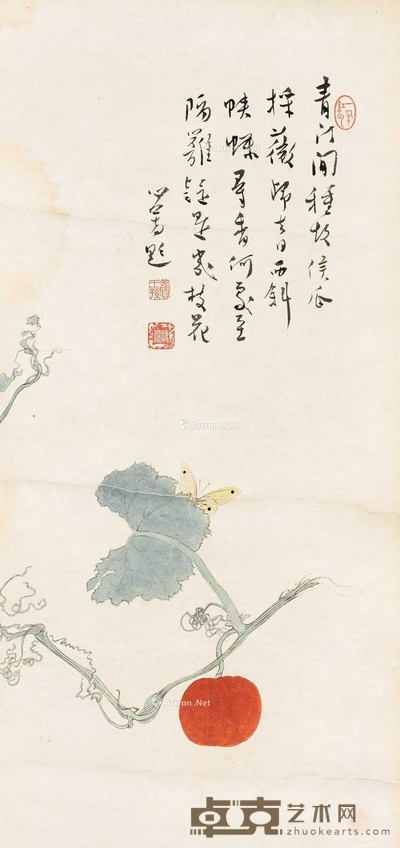 青門閒種故侯瓜
採薇歸去日西斜
蛺蝶尋香何處至
隔籬疑是幾枝花
心畬題
Artron.Net
Artron.Net
卓克艺术网
zhuokearts.com